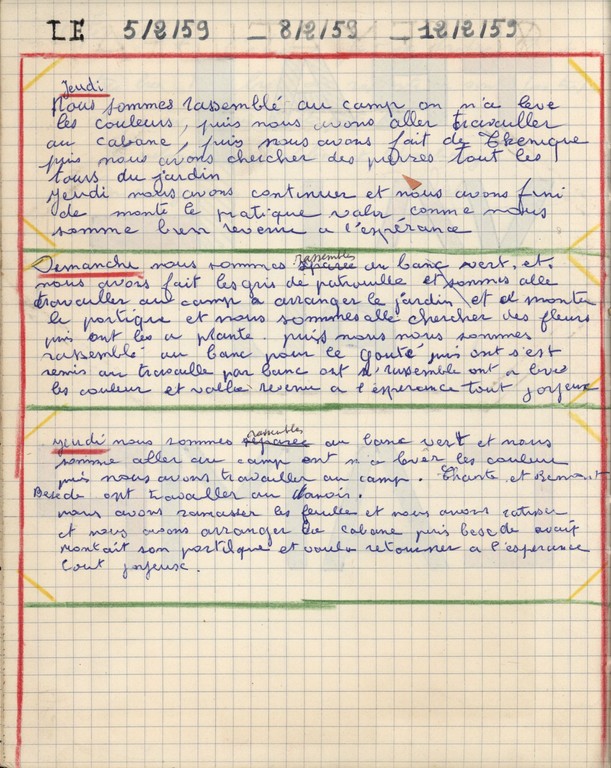 LE 5/2/59 _ 8/2/59 _ 12/2/59
Jeudi
Nous sommes rassemblé au camp on n'a leve
les couleurs, puis nous avons aller travailler
au cabane, puis nous avons fait de Tkenique
puis nous avons chercher des pierres tout les
tours du jardin
jeudi nous avons continuer et nous avons fini
de monte le pratique valu comme nous
somme bien revenu a l'espérance
rassembles
Demanche nous sommes separée au banc vert, et,
nous avons fait les gris de patrouille et sommes alle
travailler au camp a arranger le jardin et d monter
le portique et nous sommes alle chercher des fleurs
puis ont les a plante. puis nous nous sommes
rassemblé au banc pour le gouté puis ont s'est
remis au travaille par banc ont s'rassemble ont a leve
les couleur et valla revenu a l'esperance tout joyeux
rassembles
jeudi nous sommes séparée au banc vert et nous
somme aller au camp ont n'a lever les couleur
puis nous avons travailler au camp. Charte et Benoit
Besede ont travailler au
nous avons ramasser les feuille et nous avons ratisser
et nous avons arranger la cabane puis besede avait
montait son portique et voula retourner a l'esperance
tout joyeuse.